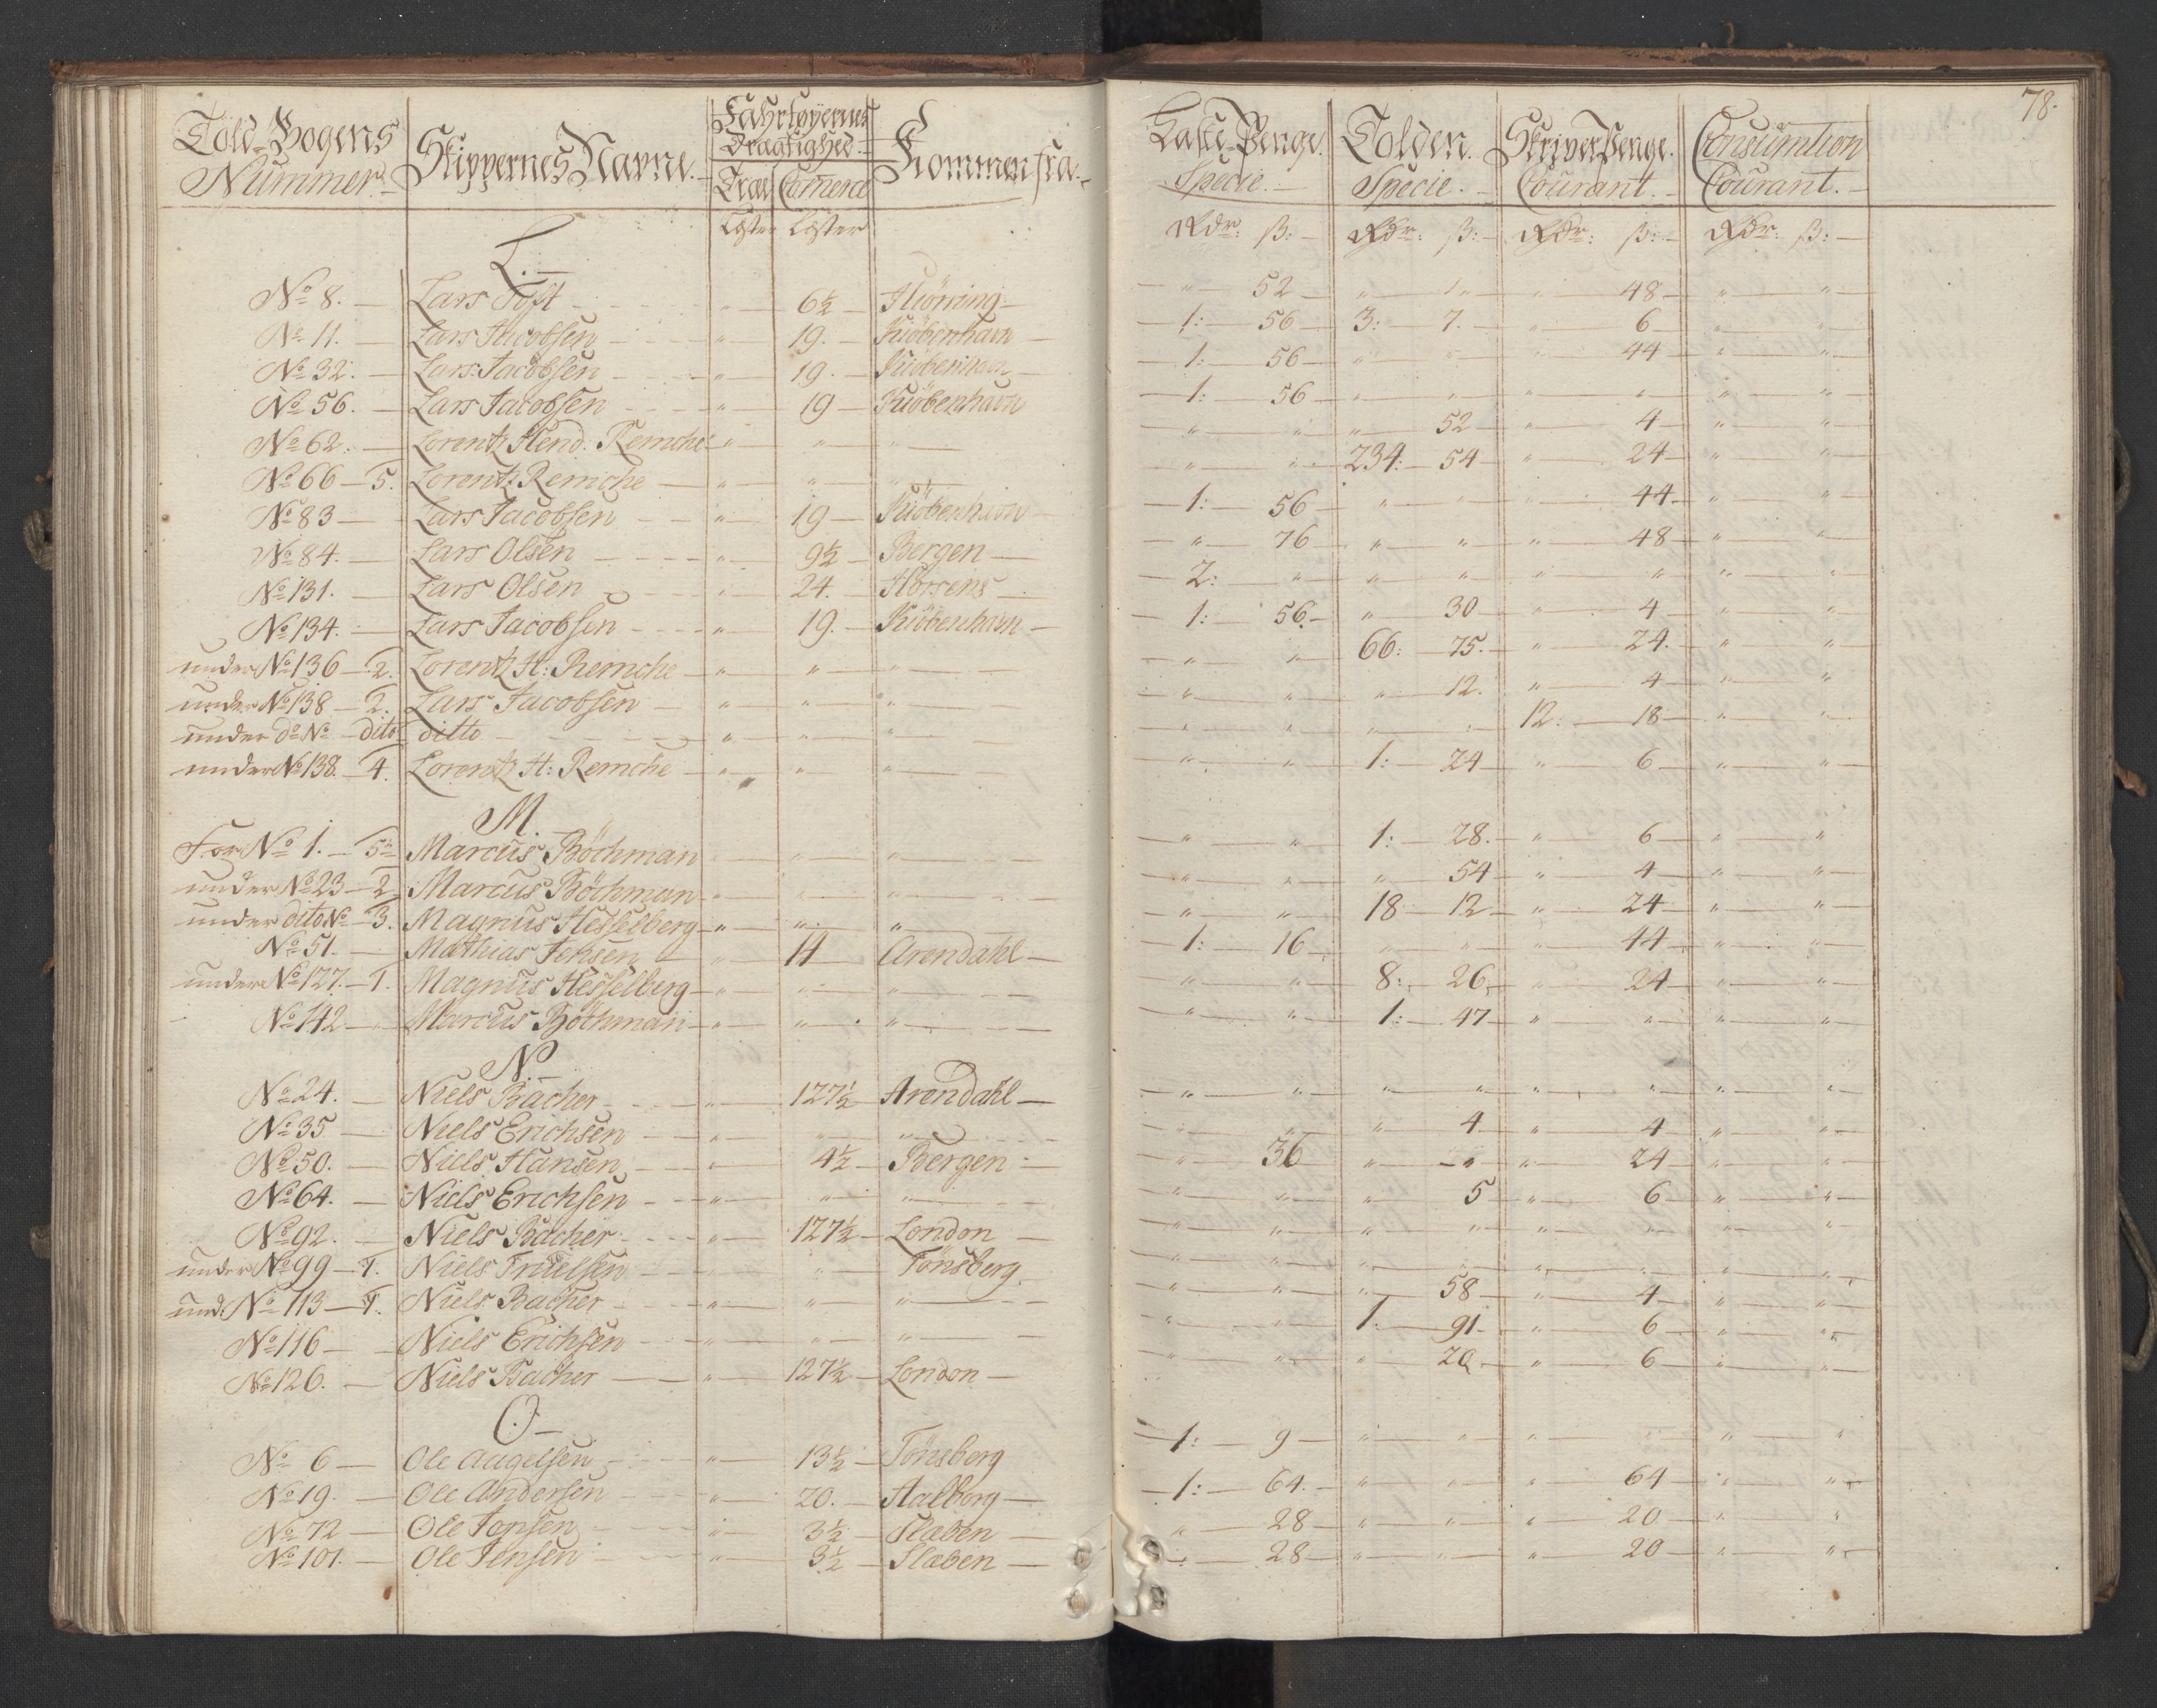 78.
Told-Bogens Nummer. Skippernes Navne. Fahrtøyernes Drægtighed. Kommen fra. Læste-Penge. Tolden. SkriverPenge. Consumtion
Træl. Comerce Specie. Specie. Courant. Courant.
Læster Læster Rdr: ß: Rdr: ß: Rdr: ß: Rdr: ß:
L.
No 8. Lars Toft " 6½ Hiörring " 52 " " " 48 " "
No 11. Lars Jacobsen " 19. Kiöbenhavn 1: 56 3: 7. " 6 " "
No 32. Lars Jacobsen " 19. Kiöbenhavn 1: 56 " " " 44 " "
No 56. Lars Jacobsen " 19 Kiöbenhavn 1: 56 " " " " " "
No 62. Lorentz Hend: Remche " " " " " " 52 " 4 " "
No 66 - 5. Lorentz Remche " " " " " 234: 54 " 24 " "
No 83 Lars Jacobsen " 19 Kiöbenhavn 1: 56 " " " 44 " "
No 84. Lars Olsen " 9½ Bergen " 76 " " " 48 " "
No 131. Lars Olsen " 24. Horsens 2: " " " " " " "
No 134. Lars Jacobsen " 19. Kiöbenhavn 1: 56. " 30 " 4 " "
under No 136 - 2. Lorentz H: Remche " " " " " 66: 75. " 24. " "
under No 138 - 2. Lars Jacobsen " " " " " " 12. " 4 " "
under do No dito ditto " " " " " " " 12: 18 " "
under No 138. - 4. Lorentz H: Remche " " " " " 1: 24 " 6 " "
M.
For No 1. - 5 Marcus Böchman " " " " " 1: 28. " 6 " "
under No 23 - 2 Marcus Böchman " " " " " " 54 " 4 " "
under dito No - 3. Magnus Hesselberg " " " " " 18 12 " 24 " "
No 51. Mathias Jensen " 14 Arendahl 1: 16 " " " 44 " "
under No 127. - 1. Magnus Hesselberg " " " " " 8: 26 " 24 " "
No 142 Marcus Böthman " " " " " 1: 47 " " " "
N.
No 24. Niels Bacher " 127½ Arendahl " " " " " " " "
No 35 Niels Erichsen " " " " " " 4 " 4 " "
No 50. Niels Hansen " 4½ Bergen " 36 " " " 24 " "
No 64. Niels Erichsen " " " " " " 5 " 6 " "
No 92. Niels Bacher " 127½ London " " " " " " " "
under No 99 - 1. Niels " Tönsberg " " " " " " " "
und: No 113 - 1. Niels Bacher " " " " " " 58 " 4 " "
No 116 Niels Erichsen " " " " " 1. 91 " 6 " "
No 126. Niels Bacher " 127½ London " " " 20 " 6 " "
O
No 6 Ole Aagelsen " 13½ Tönsberg 1: 9 " " " " " "
No 19. Ole Andersen " 20. Aalborg 1: 64. " " " 64 " "
No 72 Ole Jensen " 3½ Flæben " 28 " " " 20 " "
No 101. Ole Jensen " 3½ Flæben " 28 " " " 20 " "